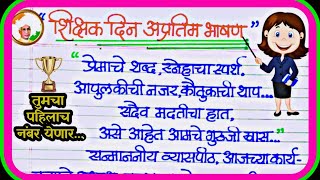 "शिक्षक दिन अप्रतिम भाषण"
"प्रेमाचे शब्द, स्नेहाचा स्पर्श,
आपुलकीची नजर, कौतुकाची थाप...
सदैव मदतीचा हात,
असे आहेत आमचे गुरुजी खास..."
सन्माननीय व्यासपीठ, आजच्या कार्य-
तुमचा
पहिलाच
नंबर येणार...